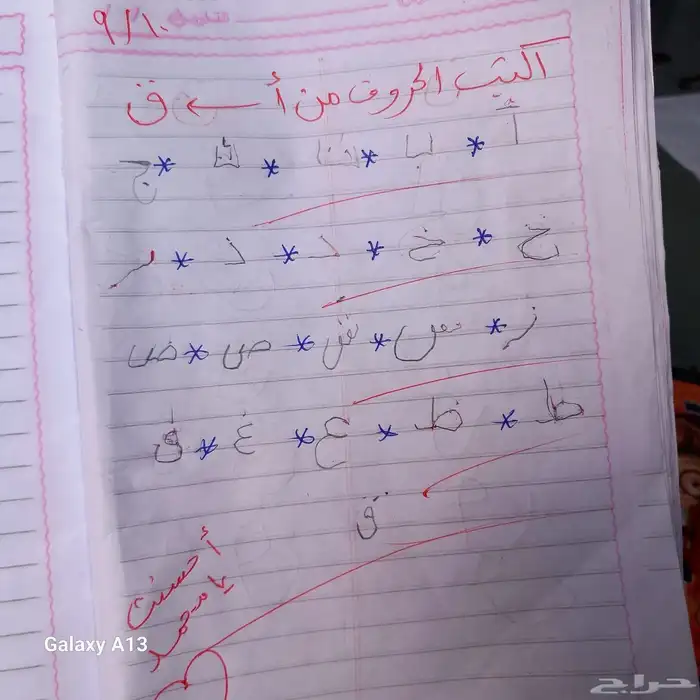 ٩/١٠
اكتب الحروف من أ ← ق
أ * ب * ت * ث * ج
خ * خ * د * ذ * ر
ز * س * ش * ص * ض
ط * ظ * ع * غ * ف
ق
أحسنت
يا محمد
Galaxy A13
حراج